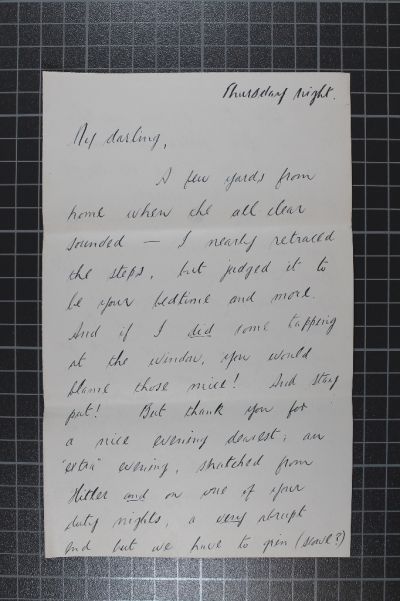 Thursday night.
My darling,
A few yards from
home when the all clear
sounded — I nearly retraced
the steps, but judged it to
be your bedtime and more.
And if I did come tapping
at the window, you would
blame those mice! And stay
put! But thank you for
a nice evening dearest; an
"extra" evening, snatched from
Hitler and on one of your
duty nights, a very abrupt
end but we have to grin